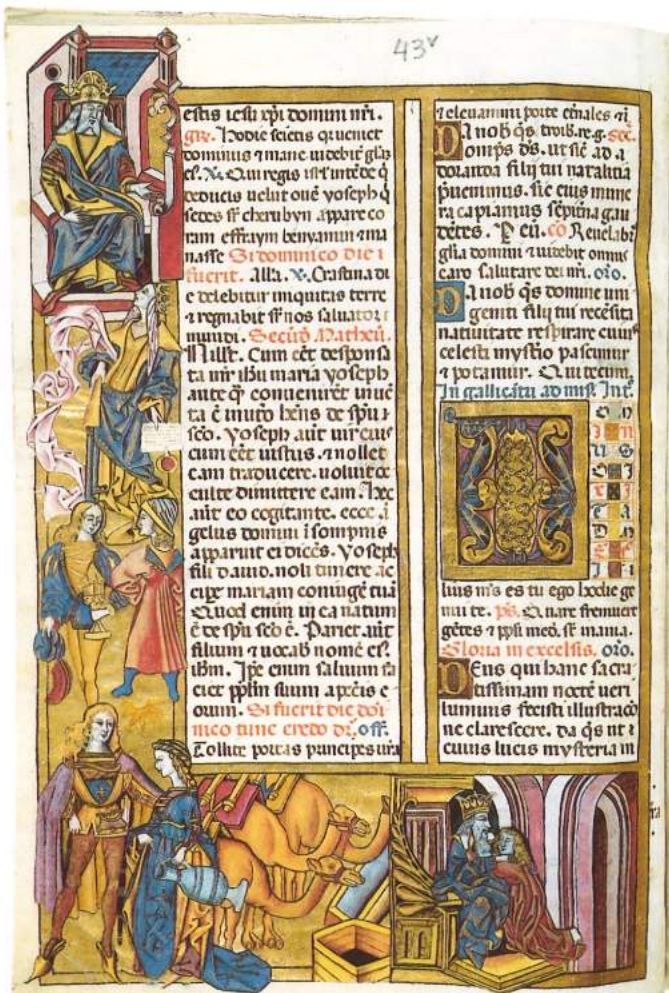 43v
estis iesu xpi domini nri.
gr. Hodie scietis qr ueniet
dominus ⁊ mane uidebit glia
ei. V. Qui regis isrl intéde q̄
deducis uelut ouē yoseph q
sedes sr̄ cherubyn appare co
ram effraym benyamin ⁊ ma
nasse Si dominico die
fuerit. Alla. V. Crastina di
e delebitur iniquitas terre
⁊ regnabit sr̄ nos saluator
mundi. Secūd. Matheū.
In illo t. Cum eēt desponsa
ta mr̄ ihū maria yoseph
ante q̄ conuenirēt inuē
ta ē in utō hēns de spū
scō. yoseph aūt uir eius
cum eēt iustus. ⁊ nollet
eam traducere. uoluit oc
culte dimittere eam. hec
aūt eo cogitante. ecce ā
gelus domini ī sompnis
apparuit ei dicēs. yoseph
fili dauid. noli timere ac
cipe mariam coniugē tuā
Quod enim in ea natum
ē de spū scō ē. Pariet aūt
filium ⁊ uocab nomē eī.
ihm. Ipe enim saluum fa
ciet pplm suum a pctis e
orum. Si fuerit die dōi
nico tunc credo dr̄. off.
Tollite portas principes urā
⁊ eleuamini porte etnales
Da nob qs
omps ds. ut sic ad a
doranda filij tui natalitia
puenimus. sic eius mune
ra capiamus sēpitna gau
dētes. P eū. cō Reuelabr̄
glia domini ⁊ uidebit omnis
caro salutare dei nr̄i. oro.
Da nob qs domine uni
geniti filij tui recēsita
natiuitate respirare cuius
celesti mystio pascimur
⁊ potamur. Qui tecum.
In gallicātu ad mis. Int.
lius ms es tu ego hodie ge
nui te. ps. Quare fremuert
gētes ⁊ ppli med. sr̄ inania.
Gloria in excelsis. oro.
Deus qui hanc sacra
tissimam noctē ueri
luminis fecisti illustracio
ne clarescere. da qs ut
cuius lucis mysteria in